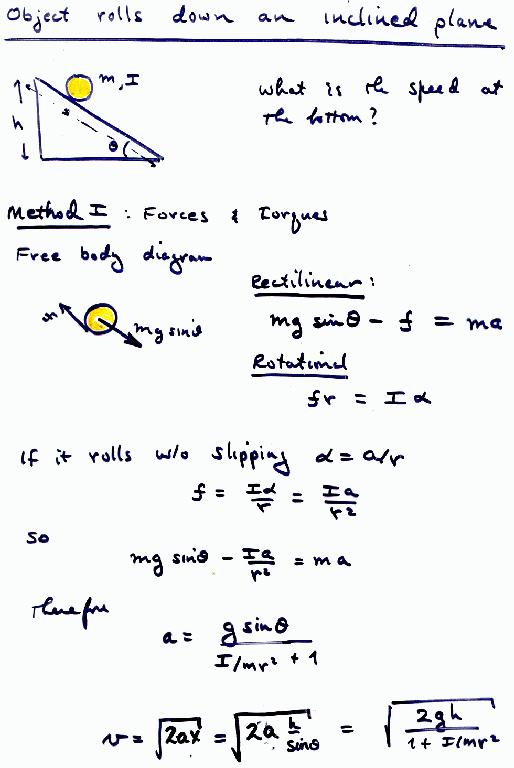 Object rolls down an inclined plane
m, I
h
x
θ
What is the speed at
the bottom?
Method I : Forces & Torques
Free body diagram
f
mg sinθ
Rectilinear:
mg sinθ - f = ma
Rotational
fr = Iα
If it rolls w/o slipping α = a/r
f = Iα/r = Ia/r²
So
mg sinθ - Ia/r² = ma
Therefore
a = g sinθ / (I/mr² + 1)
v = √2ax = √2a h/sinθ = √2gh/(1 + I/mr²)